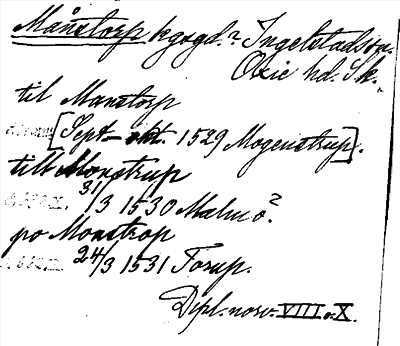 Månstorp kgsgd.? Ingelstadson.
Oxie hd. Sk.
til Manstorp
[Sept-okt. 1529 Mogenstrup].
till Monstrup
31/3 1530 Malmö?
po Monstrop
24/3 1531 Torup.
Dipl. norv. VIII o. X.